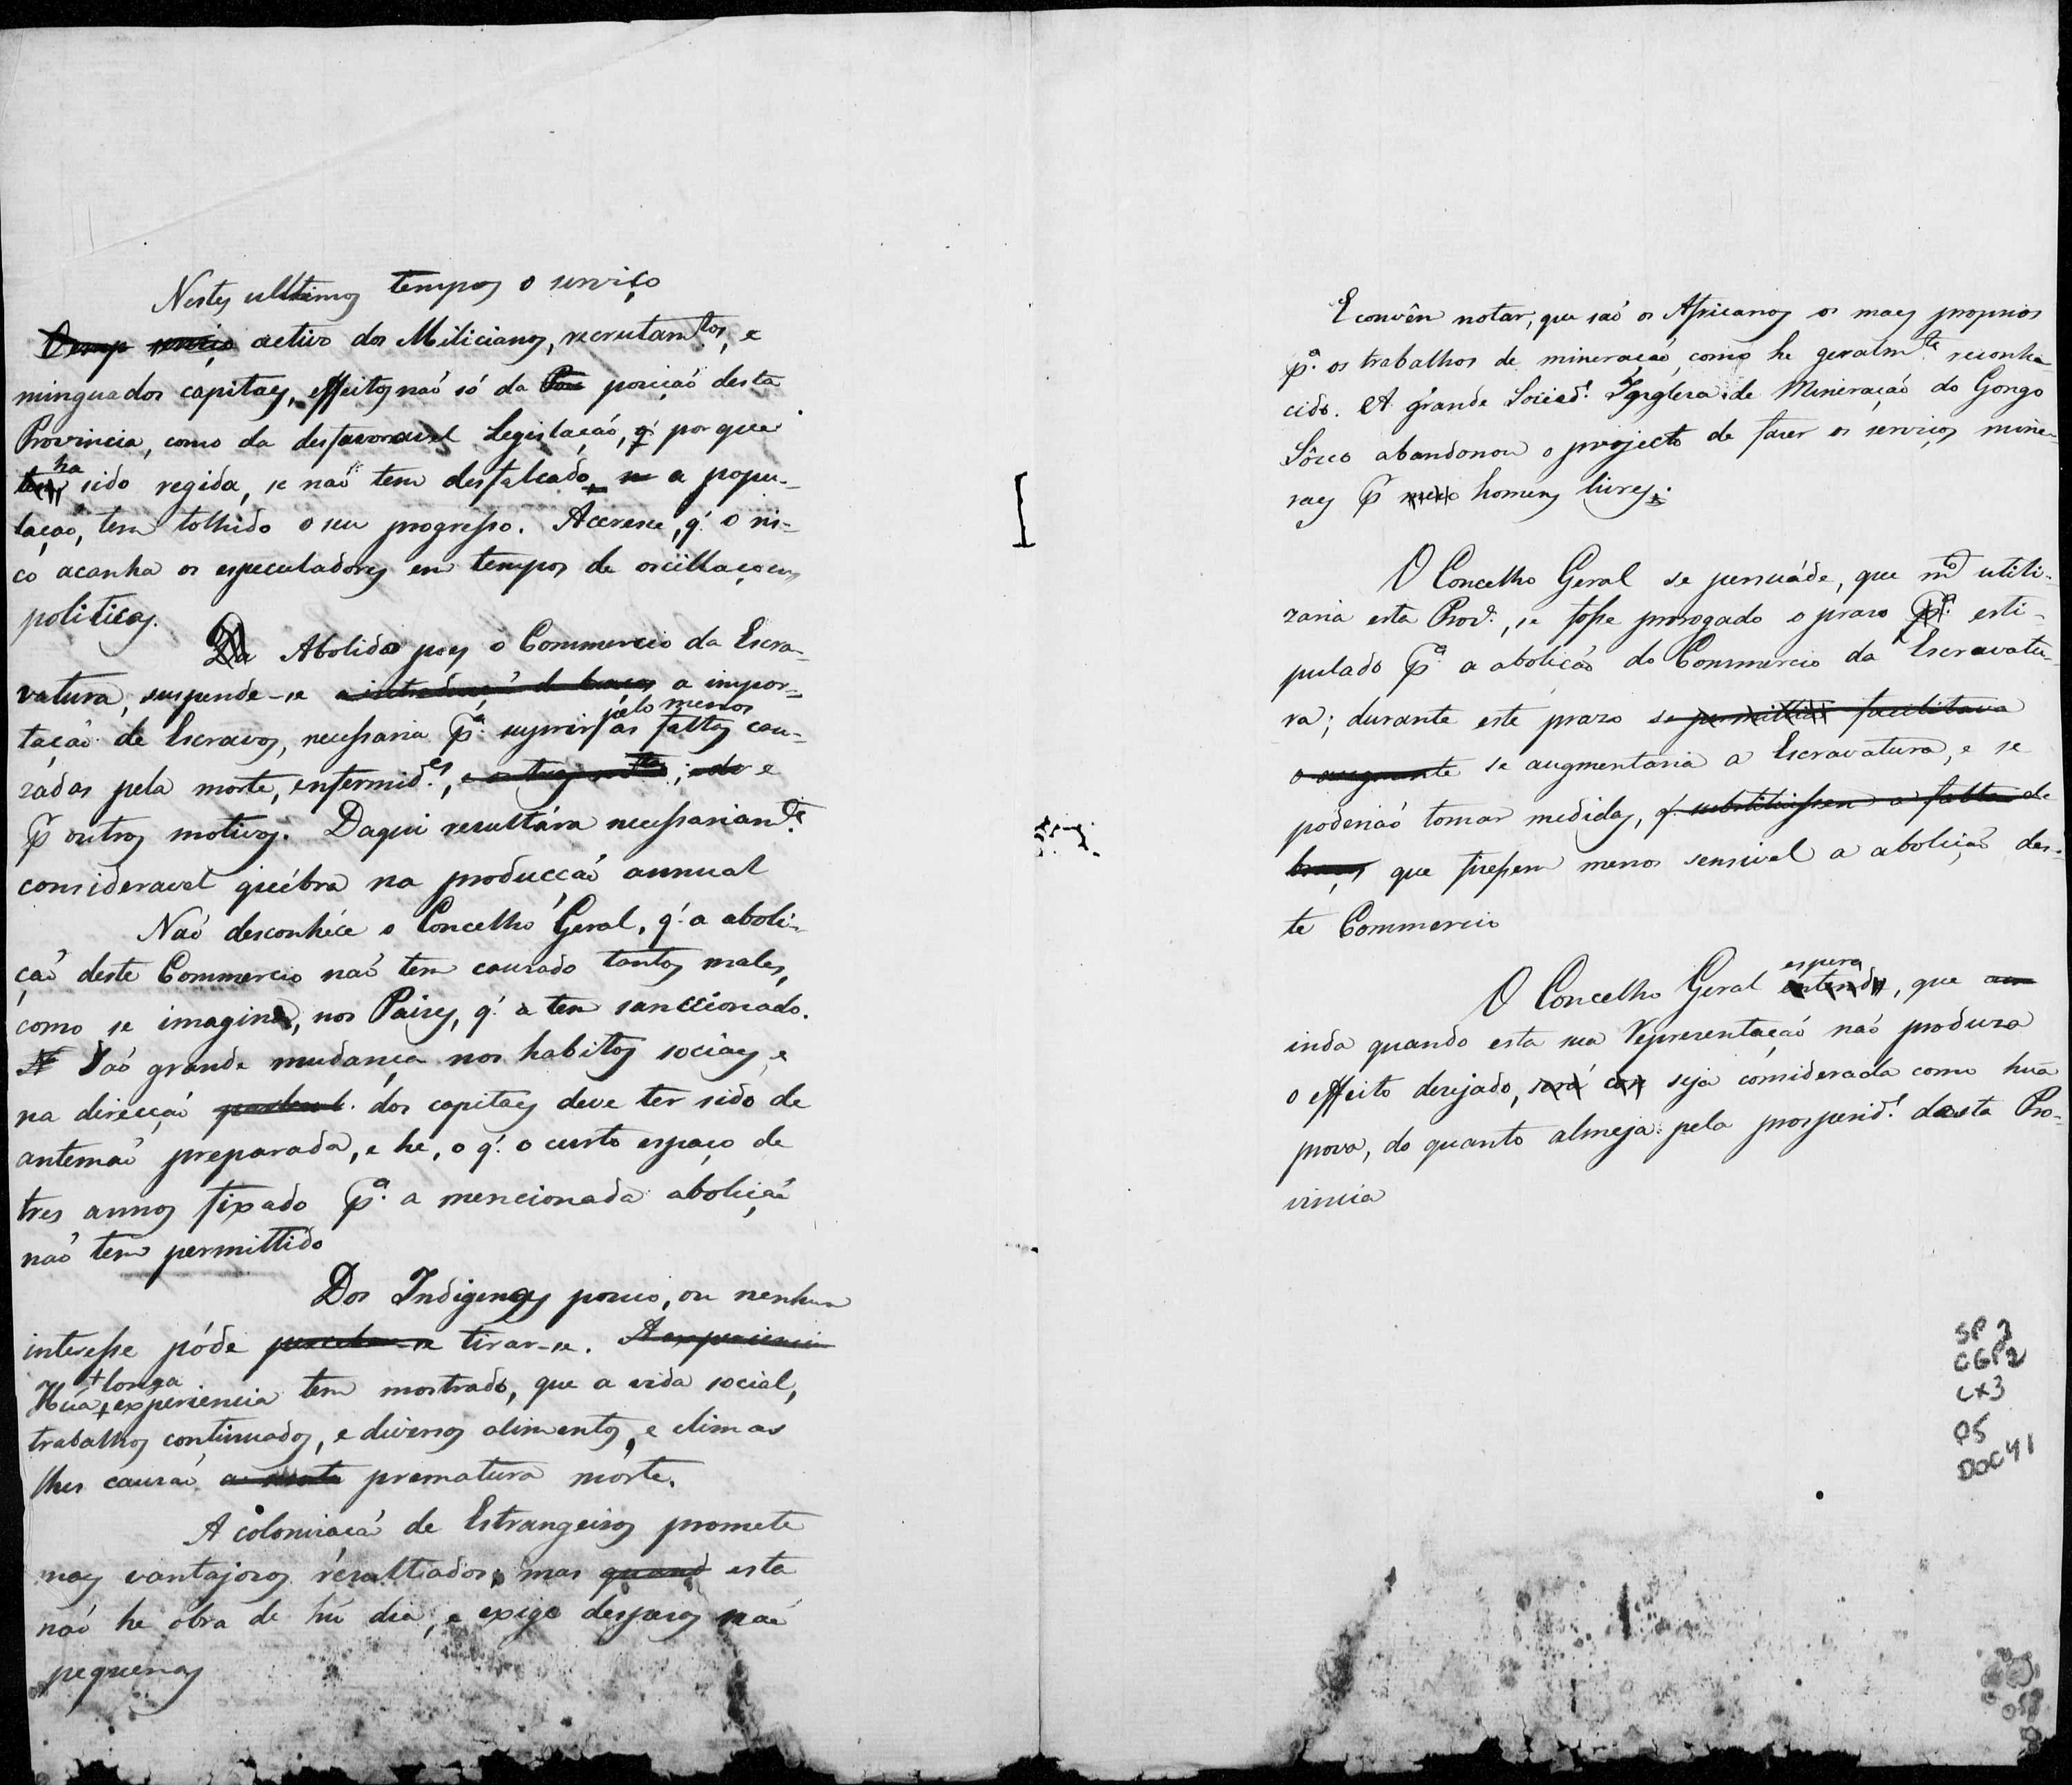 Nestes ulltimos tempos o serviço
activo dos Milicianos, recrutam.tos, e
minguados capitaes, effeitos naõ só da posiçaõ desta
Provincia, como da desfavoravel Legislaçaõ, porque
ha sido regida, se naõ tem desfalcado, a popu-
laçaõ, tem tolhido o seu progresso. Accresce, q.' o ris-
co acanha os especuladores em tempos de oscillaçoens
politicas.
Abolido pois o Commercio da Escra-
vatura, suspende-se a introducçaõ de braços a impor-
pelo menos
taçaõ de Escravos, necessaria p.a suprir as faltas cau-
zadas pela morte, enfermid.es, e
p outros motivos. Daqui resultára necessariam.te
consideravel québra na producçaõ annual
Naõ desconhéce o Concelho Geral, q.' a aboli-
çaõ deste Commercio naõ tem causado tantos males,
como se imagina, nos Paises, q.' a tem sanccionado.
Taõ grande mudança nos habitos sociaes, e
na direcçaõ dos capitaes deve ter sido de
antemaõ preparada, e he, o q.' o curto espaço de
tres annos fixado p.a a mencionada aboliçaõ
naõ tem permittido
Dos Indigenas pouco, ou nenhum
interesse póde perceber-se tirar-se. A experiencia
+ longa
Hũa + experiencia tem mostrado, que a vida social,
trabalhos continuados, e diversos alimentos, e climas
lhes causaõ a morte prematura mórte.
A colonisaçaõ de Estrangeiros promete
mais vantajosos résultados, mas quand esta
naõ he obra de hũ dia, e exige despesas naõ
pequenas
E convên notar, que saõ os Africanos os mais proprios
p.a os trabalhos de mineraçaõ, como he geralm.te reconhe
cido. A grande Socied.e Inglesa de Mineraçaõ do Gongo
Sôcco abandonou o projecto de faser os serviços mine-
raes p homens livres.
O Concelho Geral se persuáde, que m.to utili-
zaria esta Prov.a, se fosse prorogado o praso p.a esti-
pulado p.a a aboliçaõ do Commercio da Escravatu-
ra; durante este praso se permittia facilitava
o augmente se augmentaria a Escravatura, e se
poderiaõ tomar medidas, q.' substituissem a falta de
braços que fisessem menos sensivel a aboliçaõ des-
te Commercio
espera
O Concelho Geral entende, que
inda quando esta sua Representaçaõ naõ produza
o effeito desejado, será con seja considerada como hũa
prova, do quanto almeja pela prosperid.e desta Pro-
vincia
SP 2
CGP2
CX3
P5
DOC 41